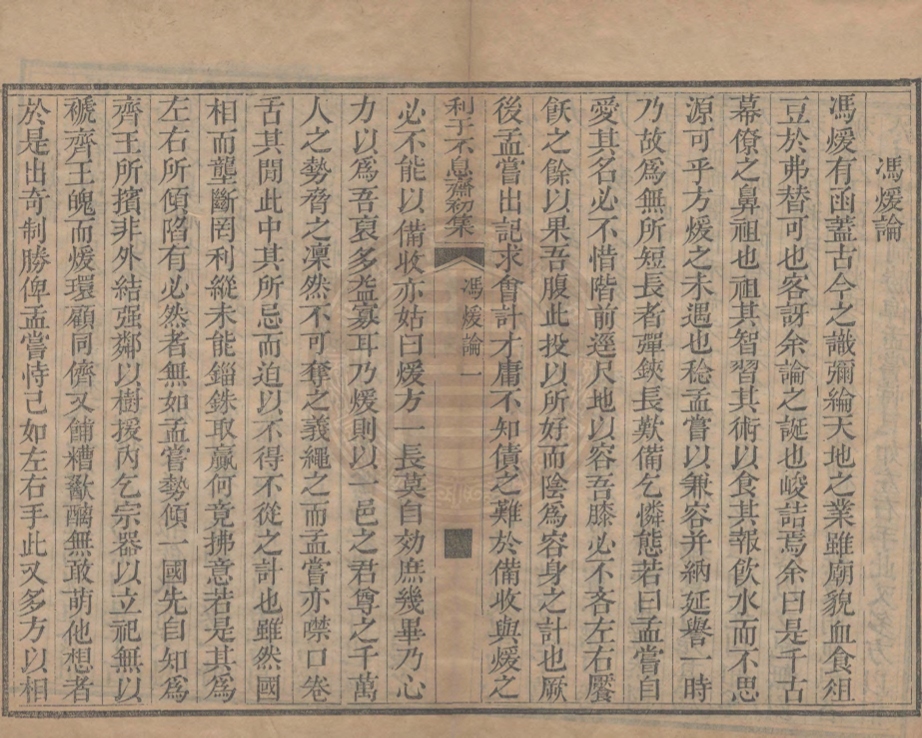 馮煖論
馮煖有函蓋古今之識彌綸天地之業雖廟貌血食俎
豆於弗替可也客訝余論之誕也峻詰焉余曰是千古
幕僚之鼻祖也祖其智習其術以食其報飲水而不思
源可乎方煖之未遇也稔孟嘗以兼容并納延譽一時
乃故爲無所短長者彈鋏長歎備乞憐態若曰孟嘗自
愛其名必不惜階前逕尺地以容吾膝必不吝左右饜
飫之餘以果吾腹此投以所好而陰爲容身之計也厥
後孟嘗出記求會計才庸不知債之難於備收與煖之
利于不息齋初集
馮煖論
一
必不能以備收亦姑曰煖方一長莫自効庶幾畢乃心
力以爲吾裒多益寡耳乃煖則以一邑之君尊之千萬
人之勢脅之凜然不可奪之義繩之而孟嘗亦噤口卷
舌其閒此中其所忌而迫以不得不從之計也雖然國
相而壟斷罔利縱未能錙銖取贏何竟拂意若是其爲
左右所傾陷有必然者無如孟嘗勢傾一國先自知爲
齊王所擯非外結强鄰以樹援內乞宗器以立祀無以
褫齊王魄而煖環顧同儕又餔糟歠醨無敢萌他想者
於是出奇制勝俾孟嘗恃己如左右手此又多方以相